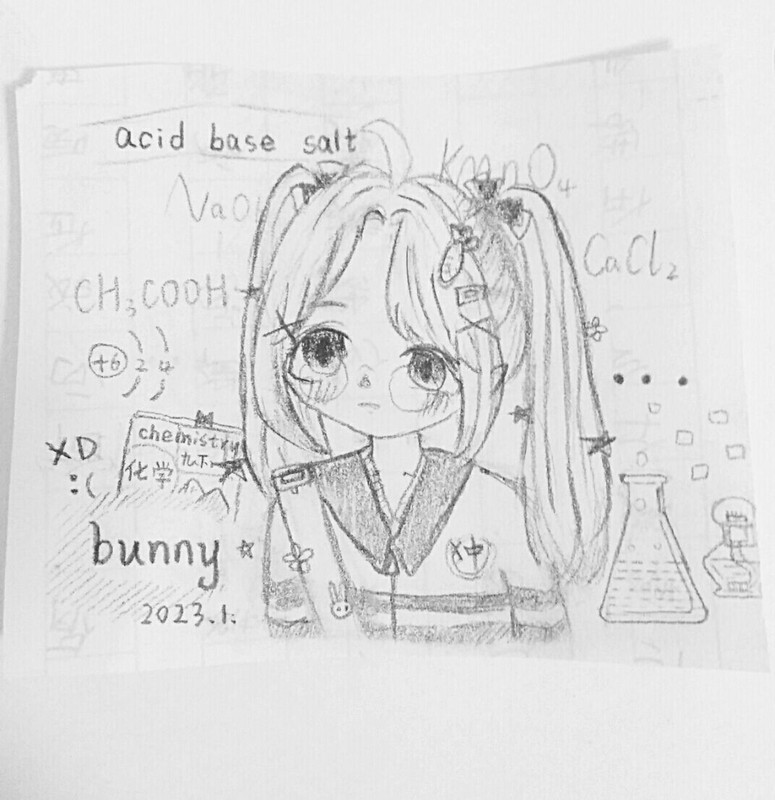 acid base salt
NaOH
KMnO₄
CaCl₂
CH₃COOH
+6 2 4
XD
:(
chemistry
化学 九下
bunny
2023.1.